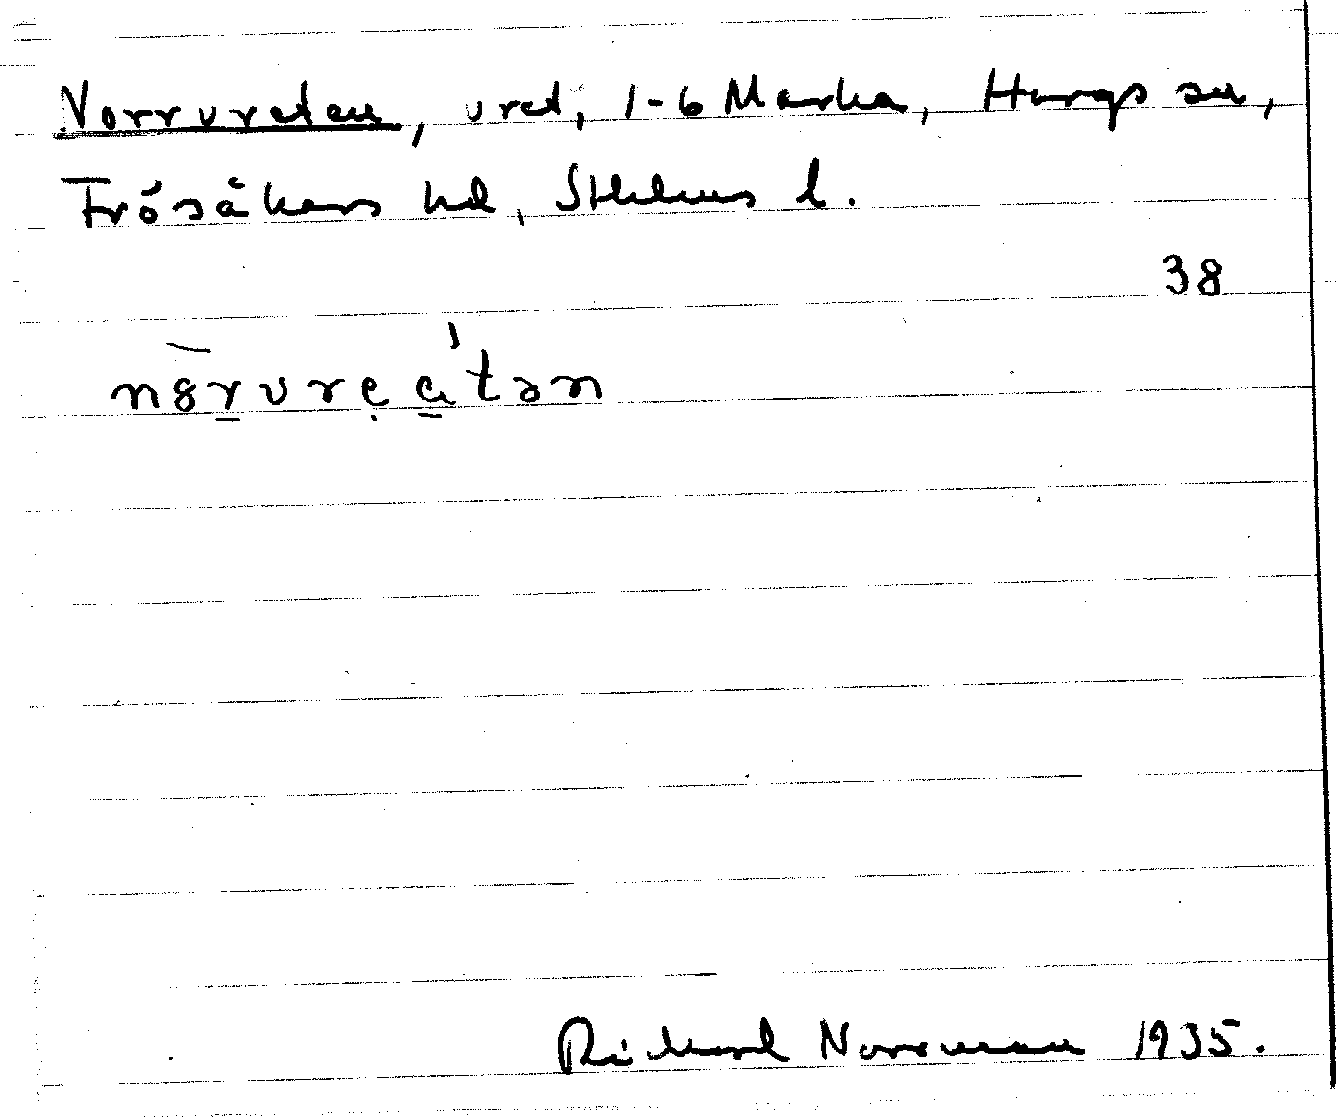 Norrvreten, vret, 1-6 Marka, Hargs sn,
Frösåkers hd, Sthlms l.
38
n8r̲vrẹa̲'tən
Richard Norrman 1935.